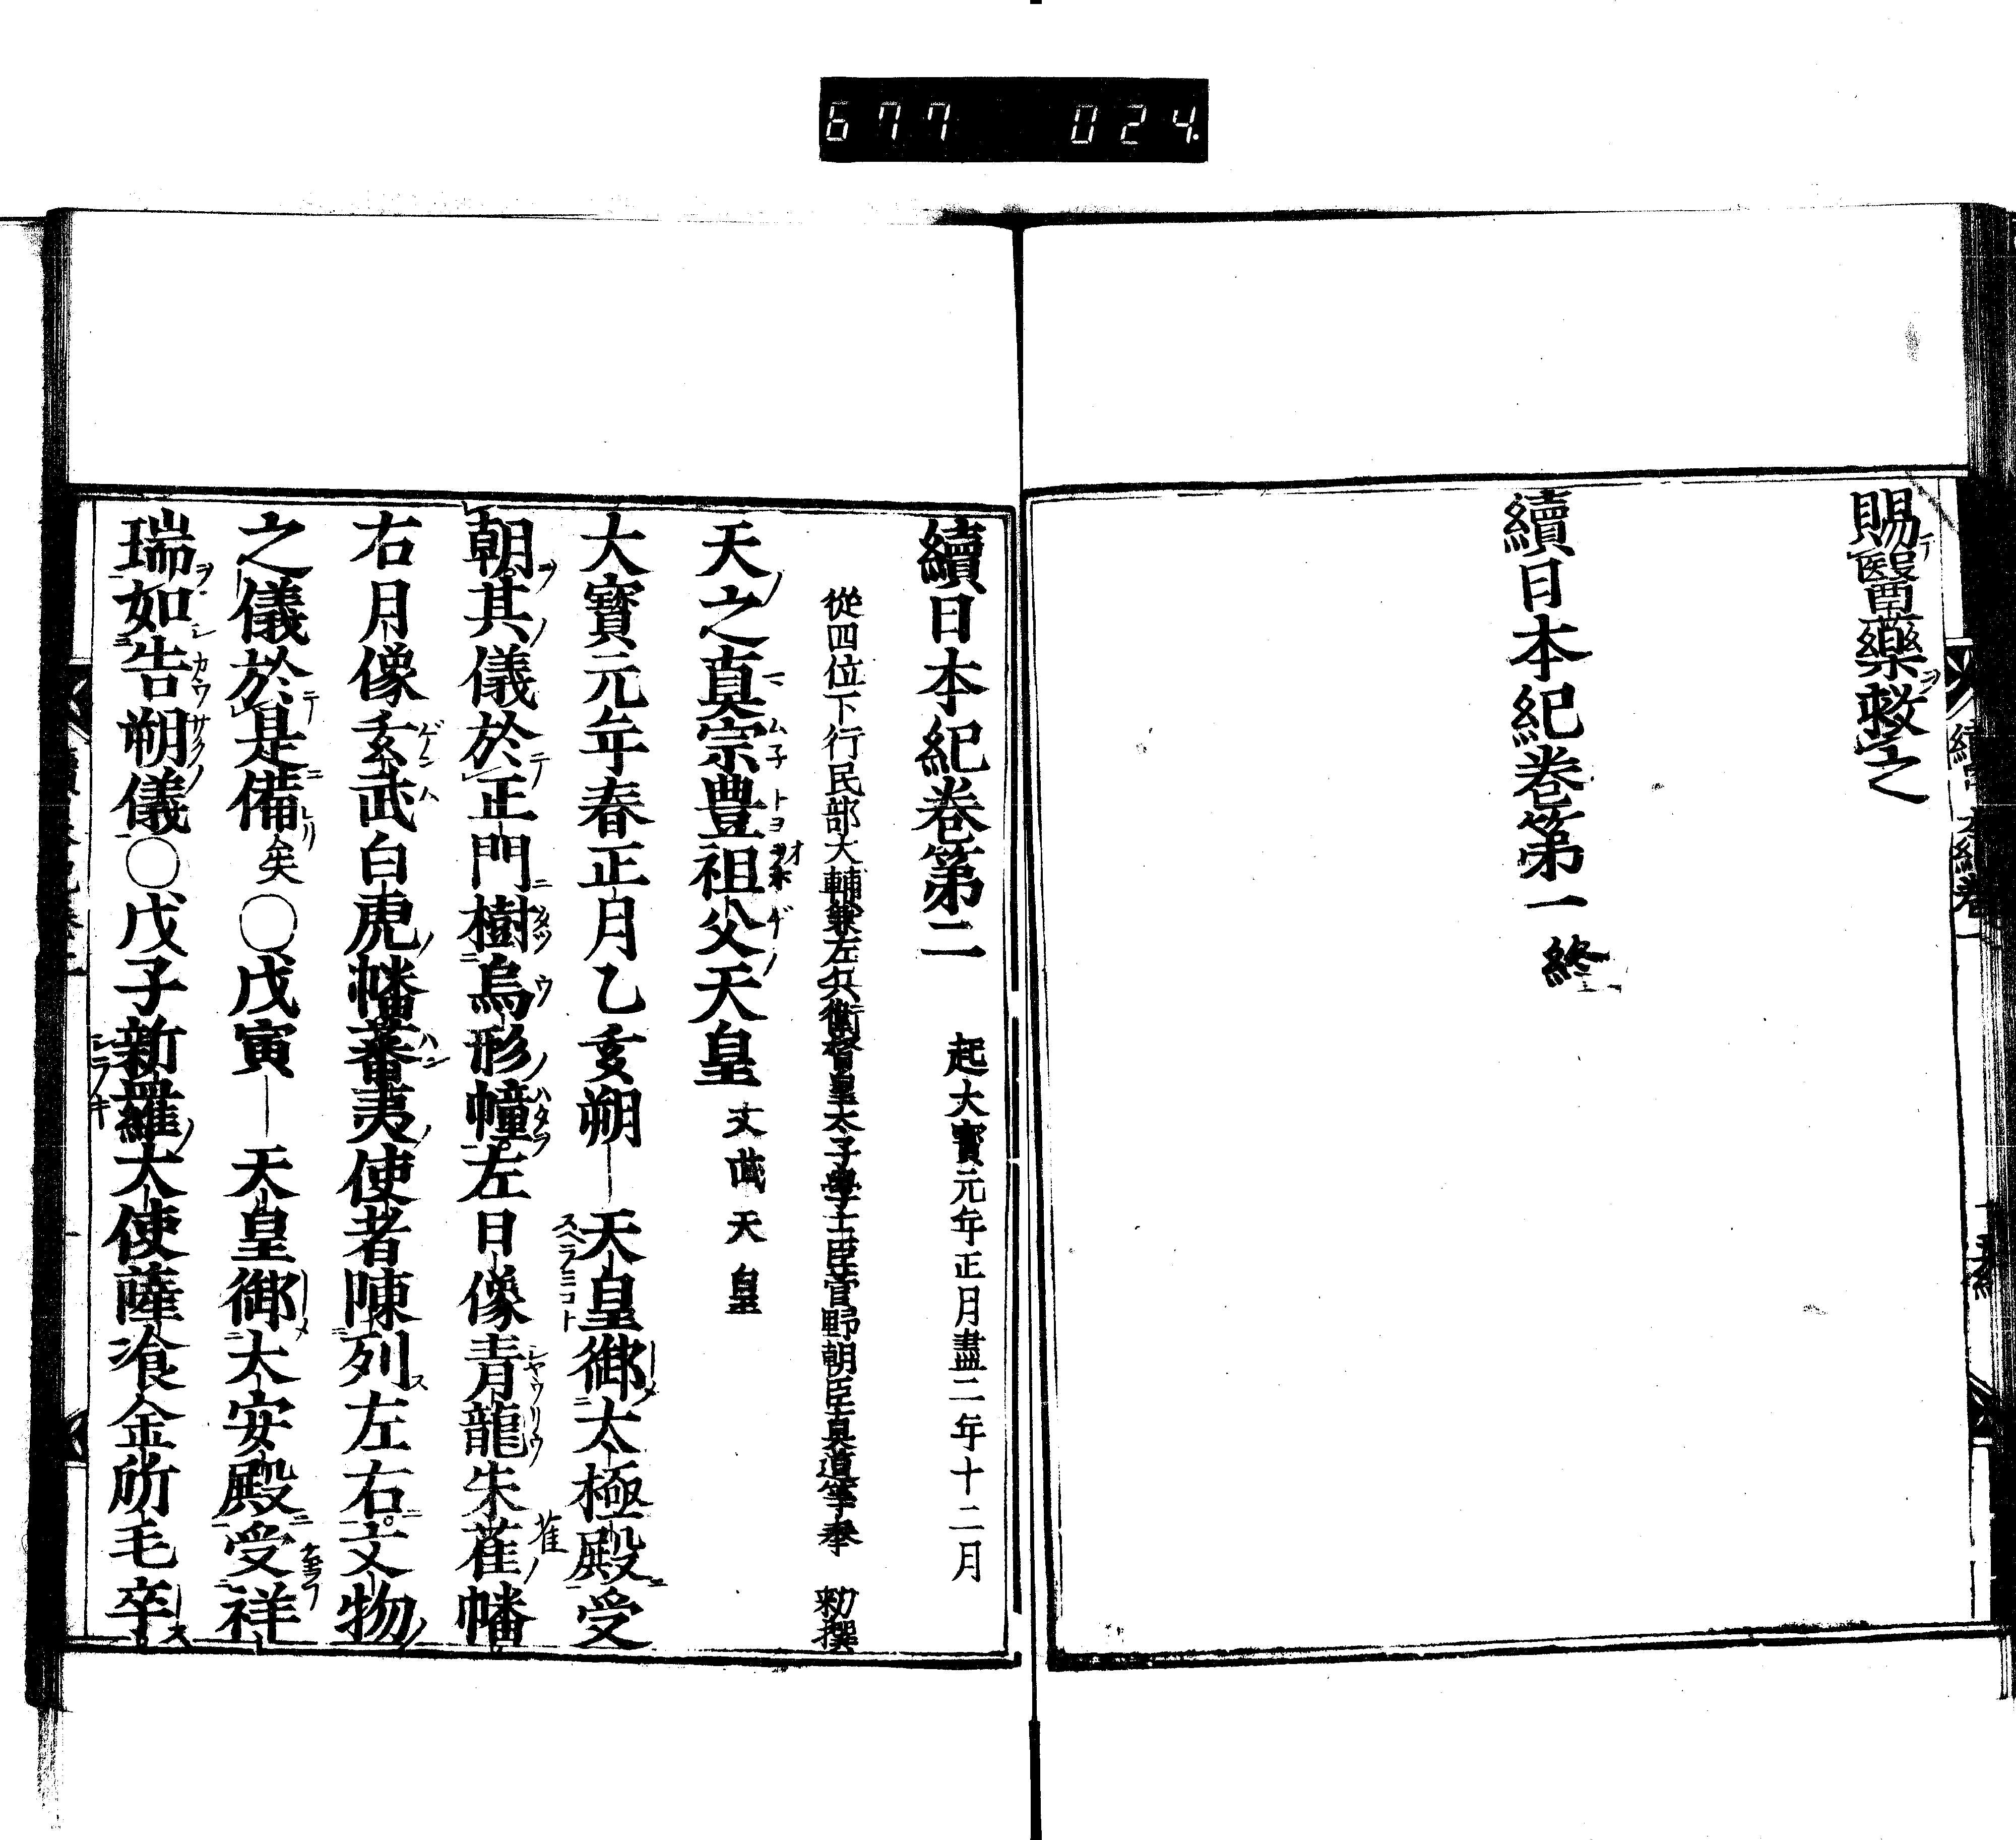 677 024.
賜醫藥救之
續日本紀卷第一 終
續日本紀卷第二 起大寶元年正月盡二年十二月
從四位下行民部大輔兼左兵衞督皇太子學士臣菅野朝臣眞道等奉 勅撰
天之眞宗豊祖父天皇 文武天皇
大寶元年春正月乙亥朔天皇御太極殿受
朝其儀於正門樹烏形幢左日像青龍朱雀幡
右月像玄武白虎幡蕃夷使者陳列左右文物
之儀於是備矣○戊寅天皇御大安殿受祥
瑞如告朔儀○戊子新羅大使薩飡金所毛卒